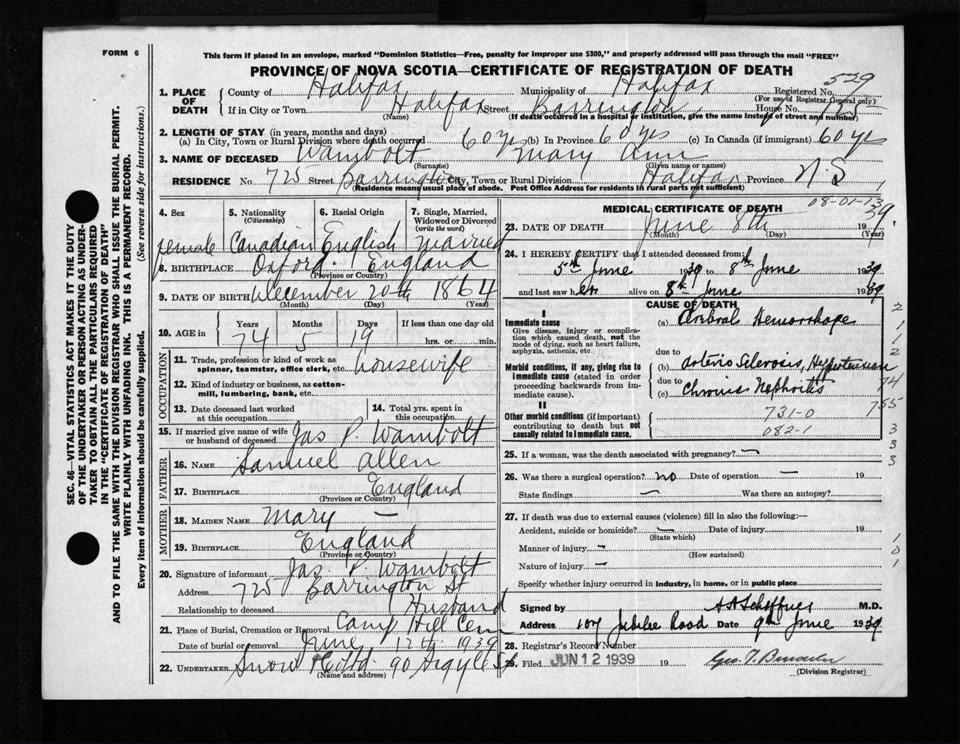 FORM 6
This form if placed in an envelope, marked "Dominion Statistics—Free, penalty for improper use $300," and properly addressed will pass through the mail "FREE"
PROVINCE OF NOVA SCOTIA—CERTIFICATE OF REGISTRATION OF DEATH
529
1. PLACE OF DEATH County of Halifax Municipality of Halifax Registered No.
(For use of Registrar General only)
If in City or Town Halifax Street Barrington House No. 725
(Name) (If death occurred in a hospital or institution, give the name instead of street and number)
2. LENGTH OF STAY (in years, months and days)
(a) In City, Town or Rural Division where death occurred 60 yrs (b) In Province 60 yrs (c) In Canada (if immigrant) 60 yrs
3. NAME OF DECEASED Wambolt Mary Ann
(Surname) (Given name or names)
RESIDENCE No. 725 Street Barrington City, Town or Rural Division Halifax Province N.S.
(Residence means usual place of abode. Post Office Address for residents in rural parts not sufficient)
4. Sex 5. Nationality (Citizenship) 6. Racial Origin 7. Single, Married, Widowed or Divorced (write the word)
female Canadian English married
8. BIRTHPLACE Oxford. England
(Province or Country)
9. DATE OF BIRTH December 20th 1864
(Month) (Day) (Year)
10. AGE in Years Months Days If less than one day
74 5 19 hrs. or min.
OCCUPATION
11. Trade, profession or kind of work as spinner, teamster, office clerk, etc. housewife
12. Kind of industry or business, as cotton-mill, lumbering, bank, etc.
13. Date deceased last worked at this occupation
14. Total yrs. spent in this occupation
15. If married give name of wife or husband of deceased Jas P. Wambolt
FATHER
16. NAME Samuel Allen
17. BIRTHPLACE England
(Province or Country)
MOTHER
18. MAIDEN NAME Mary —
19. BIRTHPLACE England
(Province or Country)
20. Signature of informant Jas. P. Wambolt
Address 725 Barrington St
Relationship to deceased Husband
21. Place of Burial, Cremation or Removal Camp Hill Cem
Date of burial or removal June 12th 1939
22. UNDERTAKER Snow & Co Ltd. 90 Argyle St
(Name and address)
MEDICAL CERTIFICATE OF DEATH
08-01-13
23. DATE OF DEATH June 8th 39
(Month) (Day) (Year)
24. I HEREBY CERTIFY that I attended deceased from:
5th June 1939 to 8th June 1939
and last saw her alive on 8th June 1939
CAUSE OF DEATH
I
Immediate cause (a) Cerebral Hemorrhage
Give disease, injury or complication which caused death, not the mode of dying, such as heart failure, asphyxia, asthenia, etc
due to
Morbid conditions, if any, giving rise to immediate cause (stated in order proceeding backwards from immediate cause).
(b) Arterio Sclerosis, Hypertension
due to
(c) Chronic Nephritis
II
Other morbid conditions (if important) contributing to death but not causally related to immediate cause.
731-0
082-1
25. If a woman, was the death associated with pregnancy? —
26. Was there a surgical operation? no Date of operation — 19
State findings — Was there an autopsy?
27. If death was due to external causes (violence) fill in also the following:—
Accident, suicide or homicide? — Date of injury 19
(State which)
Manner of injury —
(How sustained)
Nature of injury —
Specify whether injury occurred in industry, in home, or in public place
Signed by M.D.
Address 107 Jubilee Road Date 9th June 1939
28. Registrar's Record Number
29. Filed JUN 12 1939 19
(Division Registrar)
SEC. 46—VITAL STATISTICS ACT MAKES IT THE DUTY OF THE UNDERTAKER OR PERSON ACTING AS UNDERTAKER TO OBTAIN ALL THE PARTICULARS REQUIRED IN THE "CERTIFICATE OF REGISTRATION OF DEATH" AND TO FILE THE SAME WITH THE DIVISION REGISTRAR WHO SHALL ISSUE THE BURIAL PERMIT.
WRITE PLAINLY WITH UNFADING INK. THIS IS A PERMANENT RECORD.
Every item of information should be carefully supplied. (See reverse side for instructions.)